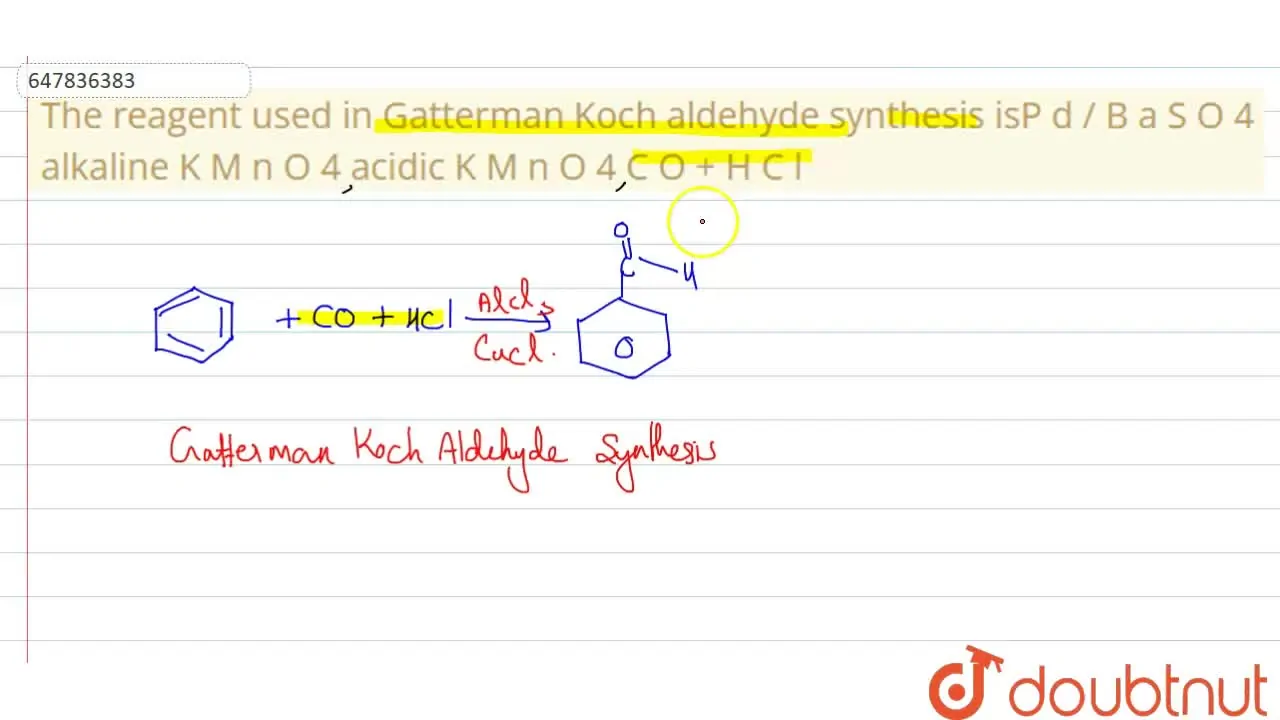 647836383
The reagent used in Gatterman Koch aldehyde synthesis isP d / B a S O 4
alkaline K M n O 4 , acidic K M n O 4 , C O + H C l
O
C
H
+ CO + HCl
AlCl3
CuCl.
O
Gatterman Koch Aldehyde Synthesis
doubtnut